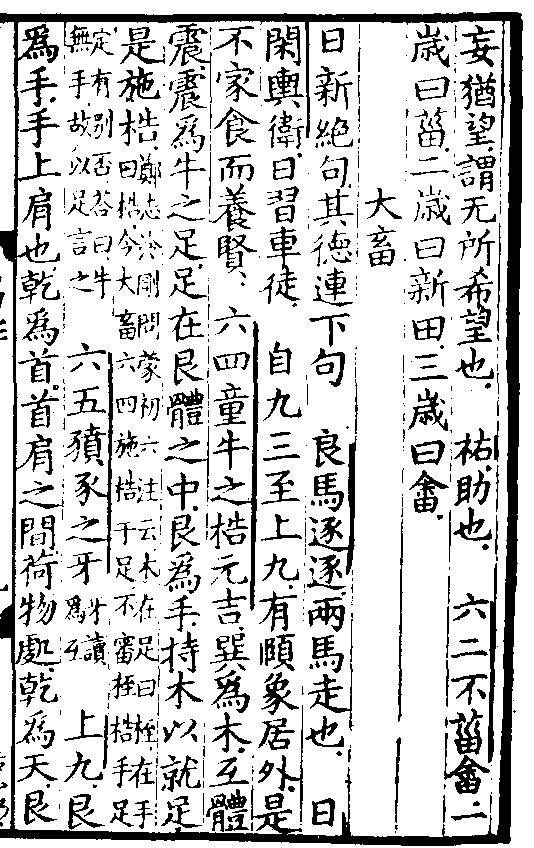 妄猶望謂无所希望也 祐助也 六二不菑畬二
歲曰菑二歲曰新田三歲曰畬
大畜
日新絕句其德連下句 良馬逐逐兩馬走也 日
閑輿衛日習車徒 自九三至上九有頤象居外是
不家食而養賢 六四童牛之梏元吉巽爲木互體
震震爲牛之足足在艮體之中艮爲手持木以就足
是施梏鄭志泠剛問蒙初六注云木在足曰桎在手
曰梏今大畜六四施梏于足不審桎梏手足
定有别否荅曰牛
無手故以足言之 六五豶豕之牙牙讀
爲互 上九艮
爲手手上肩也乾爲首首肩之間荷物處乾爲天艮